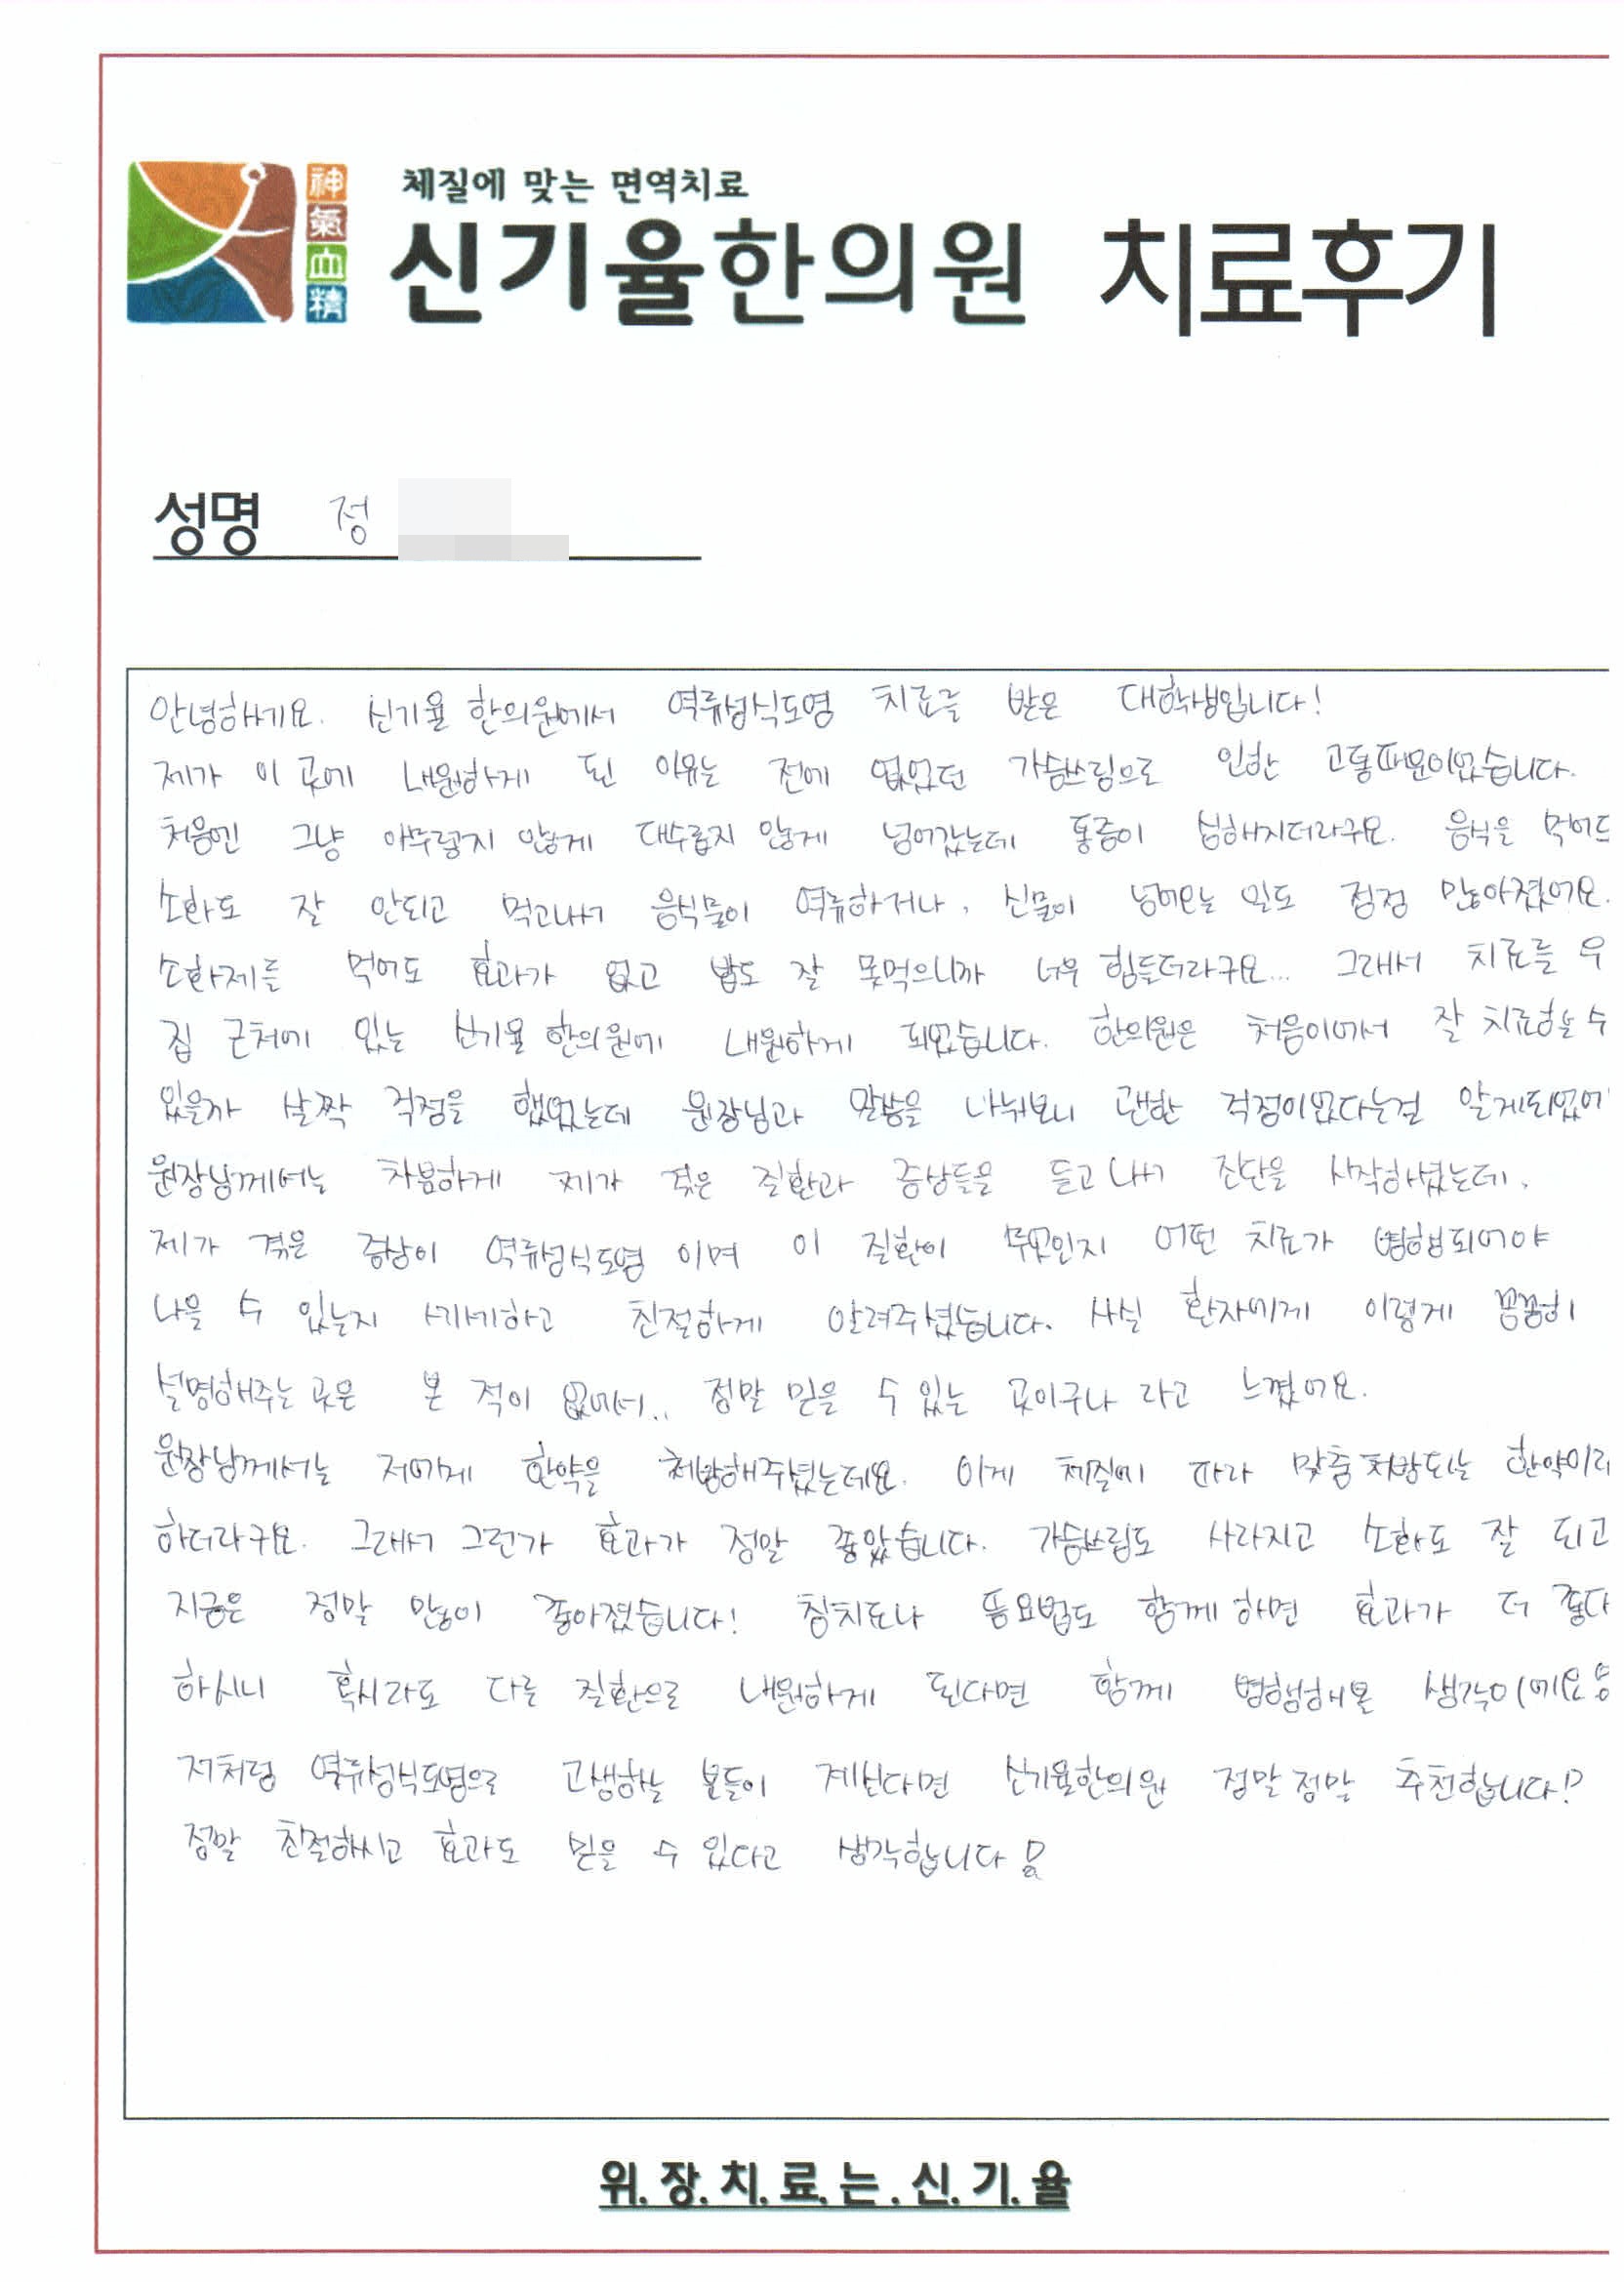 체질에 맞는 면역치료
神
氣
血
精
신기율한의원 치료후기
성명 정
안녕하세요. 신기율 한의원에서 역류성식도염 치료를 받은 대학생입니다!
제가 이 곳에 내원하게 된 이유는 전에 없었던 가슴쓰림으로 인한 고통때문이었습니다.
처음엔 그냥 아무렇지 않게 대수롭지 않게 넘어갔는데 통증이 심해지더라구요. 음식을 먹어도
소화도 잘 안되고 먹고나서 음식물이 역류하거나, 신물이 넘어오는 일도 점점 많아졌어요.
소화제를 먹어도 효과가 없고 밥도 잘 못먹으니까 너무 힘들더라구요... 그래서 치료를 우
집 근처에 있는 신기율 한의원에 내원하게 되었습니다. 한의원은 처음이여서 잘 치료할 수
있을까 살짝 걱정을 했었는데 원장님과 말씀을 나눠보니 괜한 걱정이었다는걸 알게되었어
원장님께서는 차분하게 제가 겪은 질환과 증상들을 듣고 나서 진단을 시작하셨는데,
제가 겪은 증상이 역류성식도염 이며 이 질환이 무엇인지 어떤 치료가 병행되어야
나을 수 있는지 세세하고 친절하게 알려주셨습니다. 사실 환자에게 이렇게 꼼꼼히
설명해주는 곳은 본 적이 없어서.. 정말 믿을 수 있는 곳이구나 라고 느꼈어요.
원장님께서는 저에게 한약을 처방해주셨는데요. 이게 체질에 따라 맞춤처방되는 한약이라
하더라구요. 그래서 그런가 효과가 정말 좋았습니다. 가슴쓰림도 사라지고 소화도 잘 되고
지금은 정말 많이 좋아졌습니다! 침치료나 뜸요법도 함께 하면 효과가 더 좋다
하시니 혹시라도 다른 질환으로 내원하게 된다면 함께 병행해볼 생각이에요
저처럼 역류성식도염으로 고생하는 분들이 계신다면 신기율한의원 정말정말 추천합니다!?
정말 친절하시고 효과도 믿을 수 있다고 생각합니다
위.장.치.료.는.신.기.율